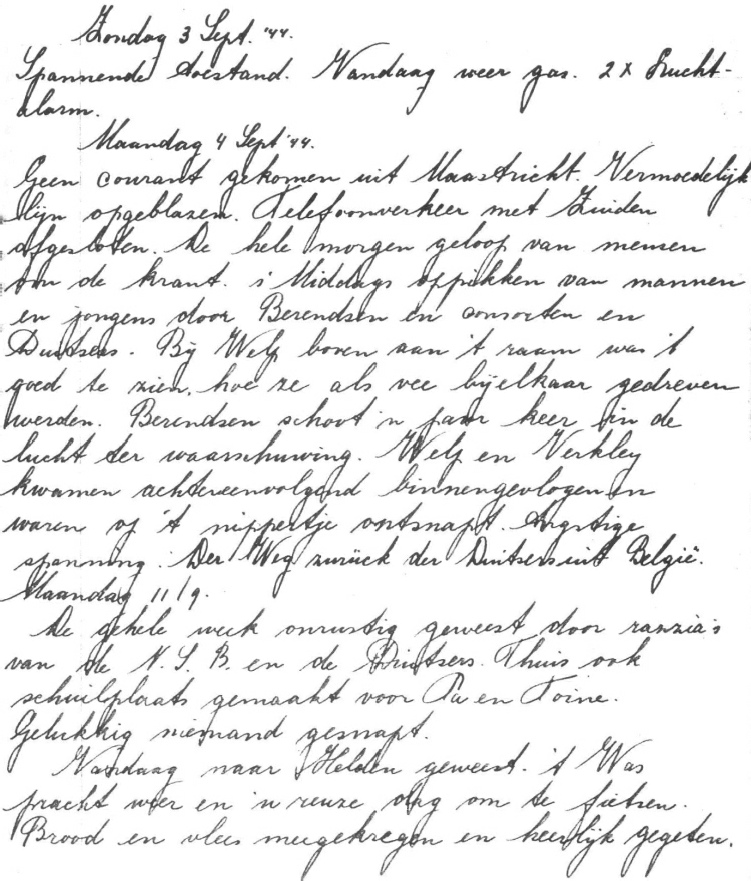 Zondag 3 Sept. '44.
Spannende toestand. Vandaag weer gas. 2 x lucht-
alarm.
Maandag 4 Sept '44.
Geen courant gekomen uit Maastricht. Vermoedelijk
lijn opgeblazen. Telefoonverkeer met Zuiden
afgesloten. De hele morgen geloop van mensen
om de krant. 's Middags oppikken van mannen
en jongens door Berendsen en consorten en
Duitsers. By Welz boven aan 't raam was 't
goed te zien, hoe ze als vee byelkaar gedreven
werden. Berendsen schoot 'n paar keer in de
lucht ter waarschuwing. Welz en Verkley
kwamen achtereenvolgend binnengevlogen en
waren op 't nippertje ontsnapt. Angstige
spanning. Der Weg zurück der Duitsers uit België.
Maandag 11/9.
De gehele week onrustig geweest door razzia's
van de N.S.B. en de Duitsers. Thuis ook
schuilplaats gemaakt voor Pa en Toine.
Gelukkig niemand gesnapt.
Vandaag naar Helden geweest. 't Was
pracht weer en 'n reuze dag om te fietsen.
Brood en vlees meegekregen en heerlijk gegeten.